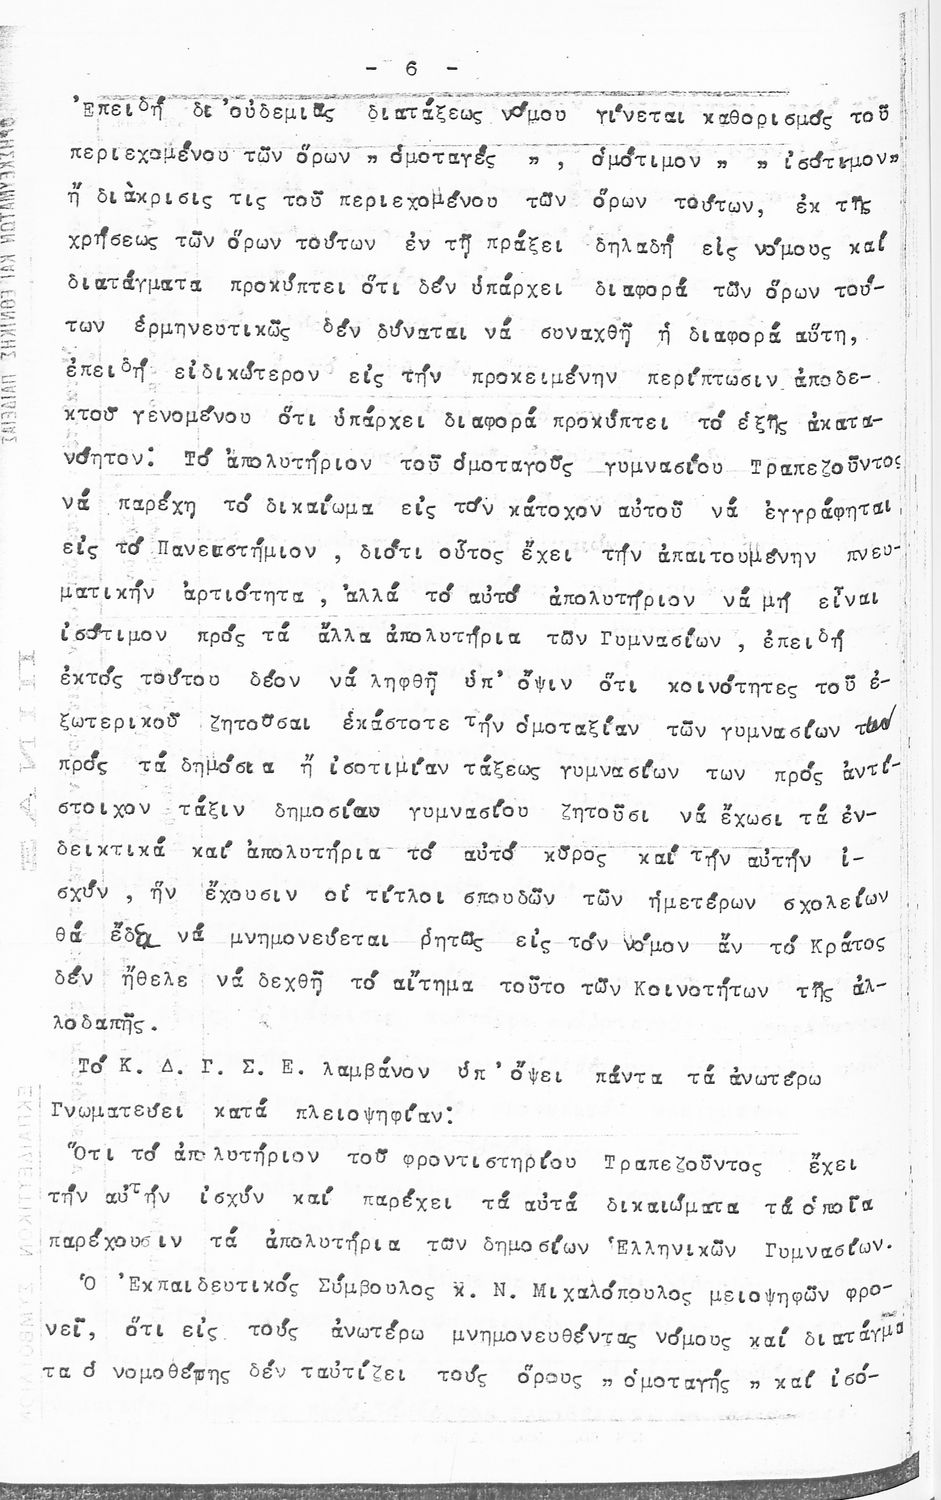 - 6 -
Ἐπειδή δι᾽οὐδεμιᾶς διατάξεως νόμου γίνεται καθορισμός τοῦ
περιεχομένου τῶν ὅρων „ ὁμοταγές „ , ὁμότιμον „ „ ἰσότιμον„
ἤ διάκρισίς τις τοῦ περιεχομένου τῶν ὅρων τούτων, ἐκ τῆς
χρήσεως τῶν ὅρων τούτων ἐν τῇ πράξει δηλαδή εἰς νόμους καί
διατάγματα προκύπτει ὅτι δέν ὑπάρχει διαφορά τῶν ὅρων τού-
των ἑρμηνευτικῶς δέν δύναται νά συναχθῇ ἡ διαφορά αὕτη,
ἐπειδή εἰδικώτερον εἰς τήν προκειμένην περίπτωσιν ἀποδε-
κτοῦ γενομένου ὅτι ὑπάρχει διαφορά προκύπτει τό ἑξῆς ἀκατα-
νόητον: Τό ἀπολυτήριον τοῦ ὁμοταγοῦς γυμνασίου Τραπεζοῦντος
νά παρέχη τό δικαίωμα εἰς τόν κάτοχον αὐτοῦ νά ἐγγράφηται
εἰς τό Πανεπστήμιον , διότι οὗτος ἔχει τήν ἀπαιτουμένην πνευ-
ματικήν ἀρτιότητα , ἀλλά τό αὐτό ἀπολυτήριον νά μή εἶναι
ἰσότιμον πρός τά ἄλλα ἀπολυτήρια τῶν Γυμνασίων , ἐπειδή
ἐκτός τούτου δέον νά ληφθῇ ὑπ᾽ ὄψιν ὅτι κοινότητες τοῦ ἐ-
ξωτερικοῦ ζητοῦσαι ἑκάστοτε τήν ὁμοταξίαν τῶν γυμνασίων των
πρός τά δημόσια ἤ ἰσοτιμίαν τάξεως γυμνασίων των πρός ἀντί-
στοιχον τάξιν δημοσίου γυμνασίου ζητοῦσι νά ἔχωσι τά ἐν-
δεικτικά καί ἀπολυτήρια τό αὐτό κῦρος καί τήν αὐτήν ἰ-
σχύν , ἥν ἔχουσιν οἱ τίτλοι σπουδῶν τῶν ἡμετέρων σχολείων
θά ἔδει νά μνημονεύεται ῥητῶς εἰς τόν νόμον ἄν τό Κράτος
δέν ἤθελε νά δεχθῇ τό αἴτημα τοῦτο τῶν Κοινοτήτων τῆς ἀλ-
λοδαπῆς.
Τό Κ. Δ. Γ. Σ. Ε. λαμβάνον ὑπ᾽ὄψει πάντα τά ἀνωτέρω
Γνωματεύει κατά πλειοψηφίαν:
Ὅτι τό ἀπολυτήριον τοῦ φροντιστηρίου Τραπεζοῦντος ἔχει
τήν αὐτήν ἰσχύν καί παρέχει τά αὐτά δικαιώματα τά ὁποῖα
παρέχουσιν τά ἀπολυτήρια των δημοσίων Ἑλληνικῶν Γυμνασίων.
Ὁ Ἐκπαιδευτικός Σύμβουλος κ. Ν. Μιχαλόπουλος μειοψηφῶν φρο-
νεῖ, ὅτι εἰς τούς ἀνωτέρω μνημονευθέντας νόμους καί διατάγμα
τα ὁ νομοθέτης δέν ταὐτίζει τούς ὅρους „ ὁμοταγής „ καί ἰσό-